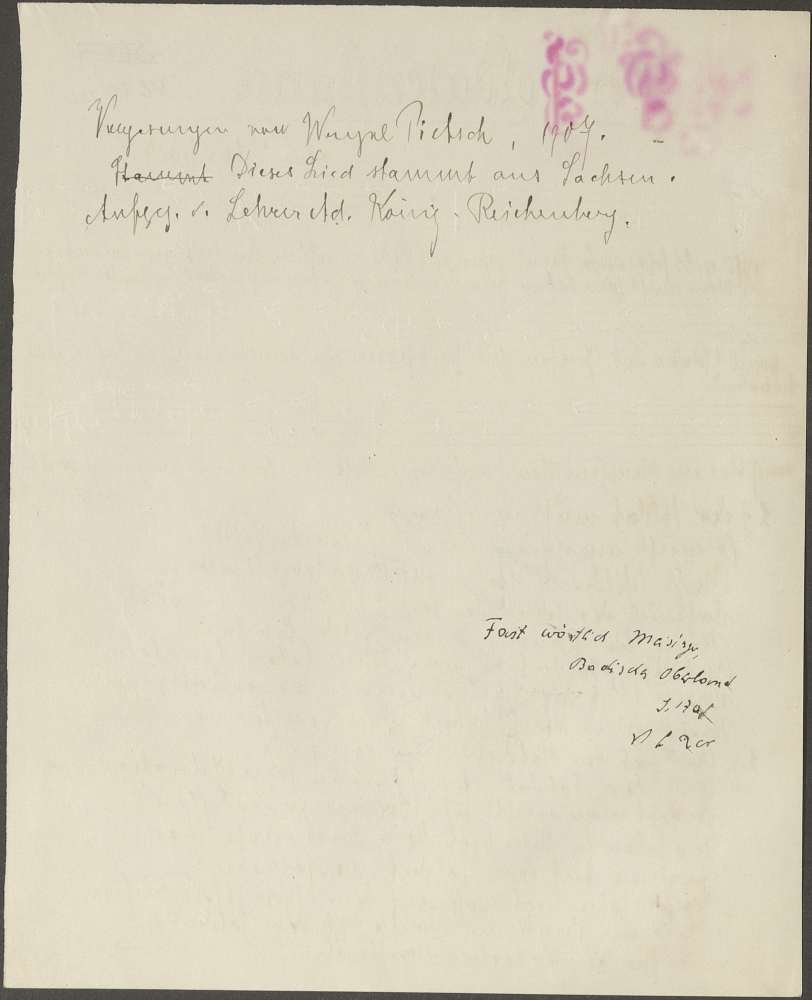 Vorgesungen von Wenzel Pietsch, 1907. –
Stammt Dieses Lied stammt aus Sachsen.
Aufgez. v. Lehrer Ad. König - Reichenberg.
Fast wörtlich Meisinger,
Badisches Oberland
S. 170f